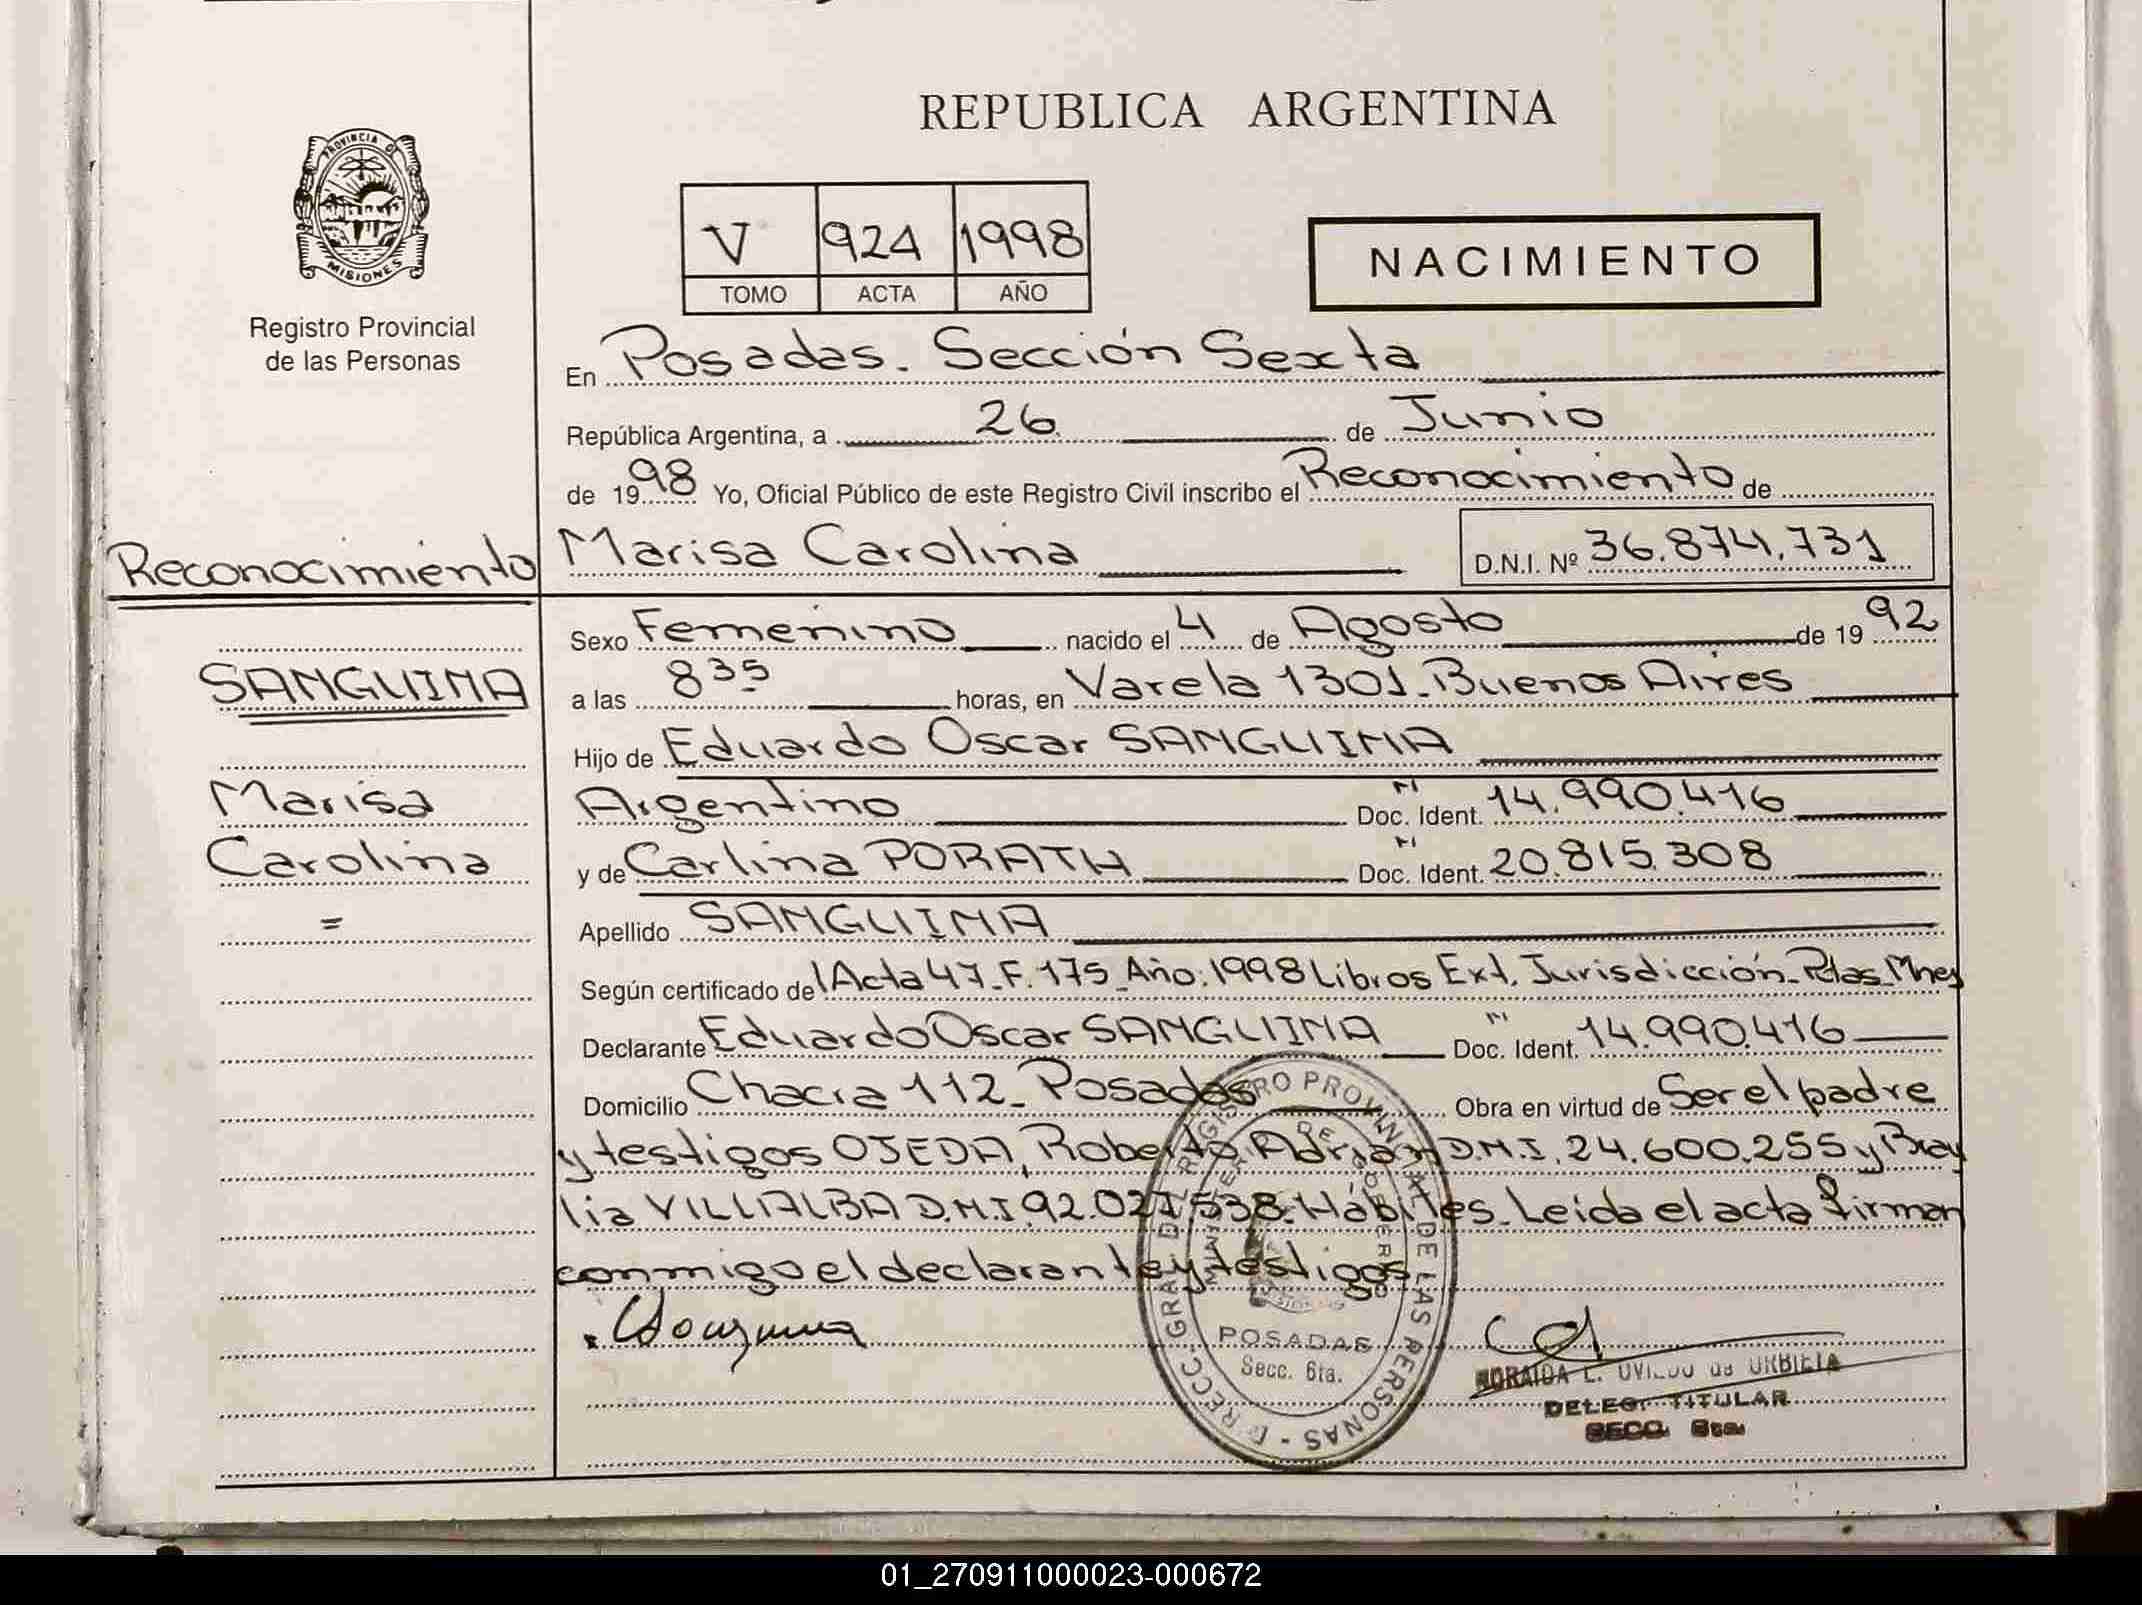 REPUBLICA ARGENTINA
PROVINCIA DE
MISIONES
Registro Provincial
de las Personas
V 924 1998
TOMO ACTA AÑO
NACIMIENTO
En Posadas. Sección Sexta
República Argentina, a 26 de Junio
de 1998 Yo, Oficial Público de este Registro Civil inscribo el Reconocimiento de
Reconocimiento
Marisa Carolina D.N.I. Nº 36.874.731
Sexo Femenino nacido el 4 de Agosto de 1992
SANGUINA
a las 8 35 horas, en Varela 1301 - Buenos Aires
Hijo de Eduardo Oscar SANGUINA
Marisa
Argentino Doc. Ident. 14.990.416
Carolina
y de Carlina PORATH Doc. Ident. 20.815.308
=
Apellido SANGUINA
Según certificado del Acta 47-F.175-Año:1998 Libros Ext. Jurisdicción-Pdas Mnes
Declarante Eduardo Oscar SANGUINA Doc. Ident. 14.990.416
Domicilio Chacra 112 - Posadas Obra en virtud de Ser el padre
y testigos OJEDA, Roberto Adrián D.N.I. 24.600.255 y
VILLALBA D.N.I. 92.027.538. Hábiles. Leída el acta firman
conmigo el declarante y testigos
POSADAS
Secc. 6ta.
TITULAR
SECC. 6ta.
01_270911000023-000672